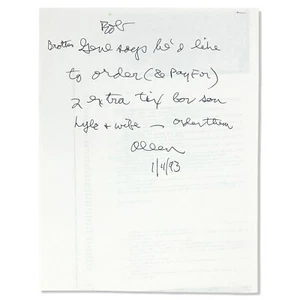 Bob
Brother Gene says he'd like
to order (& Pay For)
2 extra tix for son
Lyle + wife — order them
Allen
1/4/93